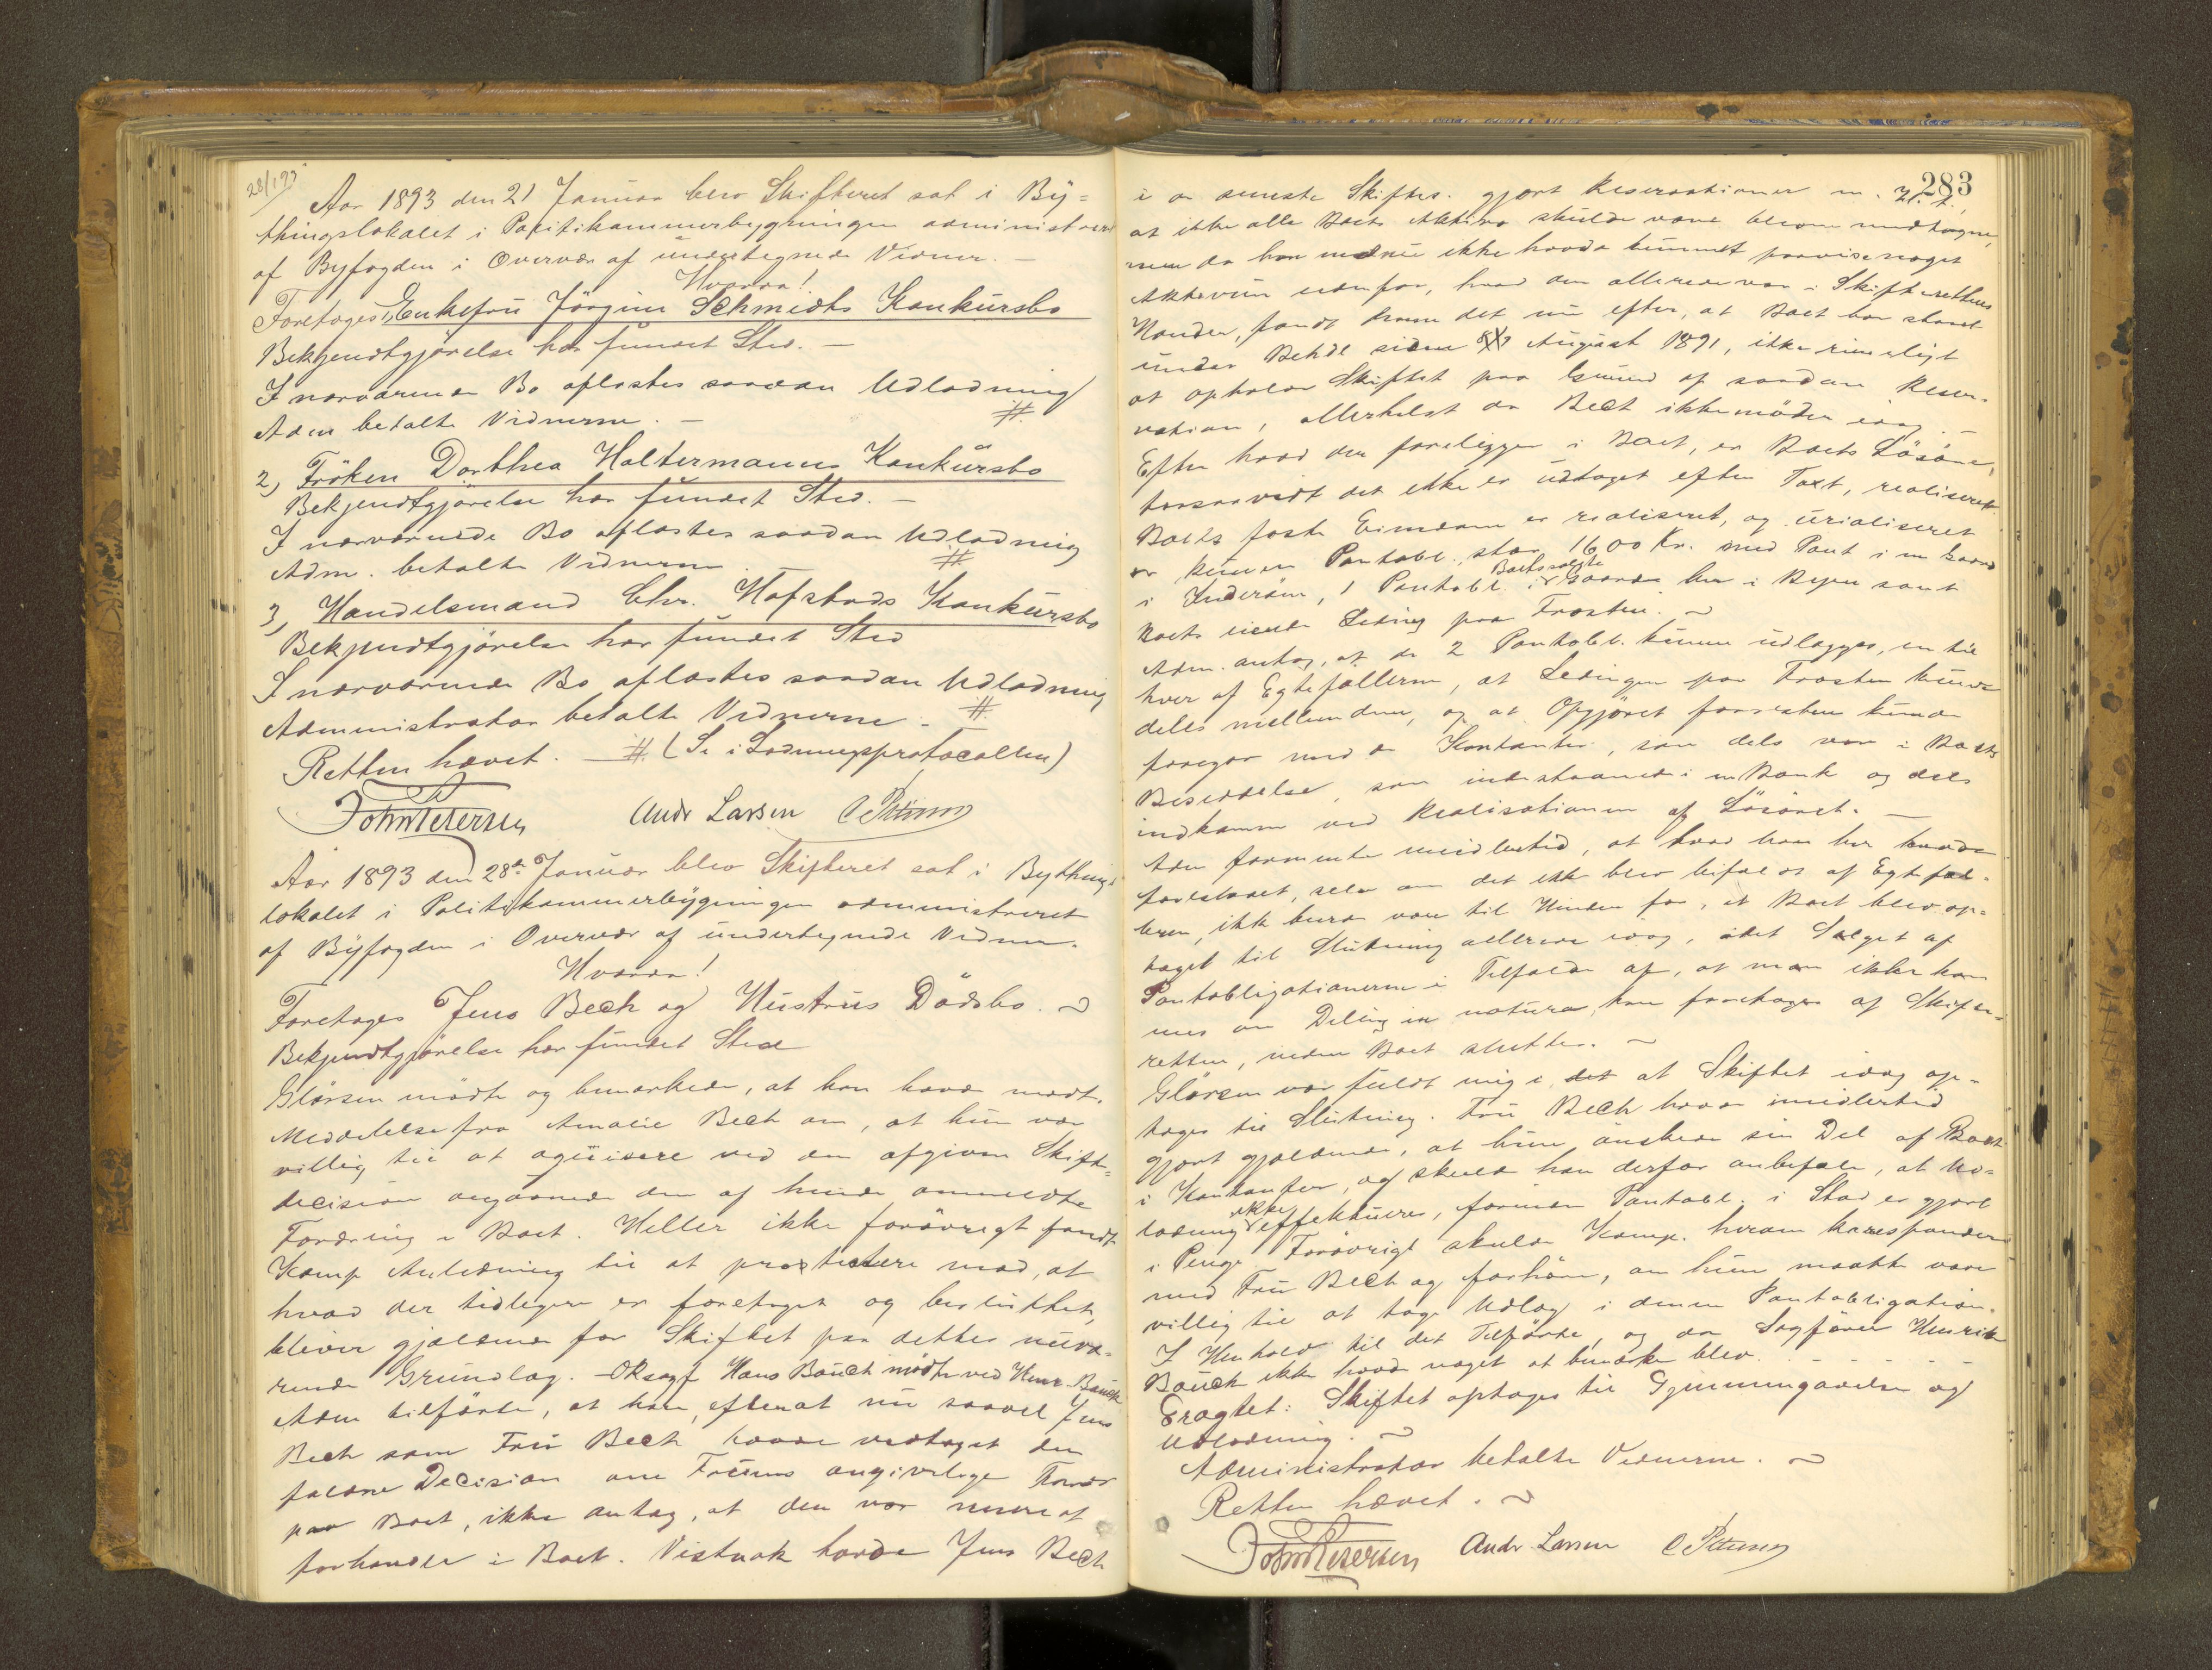 28/1 93
Aar 1893 den 21 Januar blev Skifteret sat i By=
thingslokalet i Politikammerbygningen administreret
af Byfogden i Overvær af undertegnede Vidner. —
Hvorda!
Foretages 1, Enkefru Jörgine Schmidts Konkursbo
Bekjendtgjörelse har fundet Sted. —
I nærværende Bo aflæstes saadan Udlodning
Adm betalte Vidnerne. — #
2, Fröken Dorthea Haltermanns Konkursbo
Bekjendtgjörelse har fundet Sted. —
I nærværende Bo aflæstes saadan Udlodning
Adm. betalte Vidnerne #
3, Handelsmand Chr. Hofstads Konkursbo
Bekjendtgjörelse har fundet Sted
I nærværende Bo aflæstes saadan Udlodning
Administrator betalte Vidnerne. #
Retten hævet. — # (Se i Lodningsprotocollen)
John Petersen Andr Larsen C Petersen
Aar 1893 den 28de Januar blev Skifteret sat i Bythings
lokalet i Politikammerbygningen administreret
af Byfogden i Overvær af undertegnede Vidner.
Hvorda!
Foretages Jens Bech og Hustrus Dödsbo. ~
Bekjendtgjörelse har fundet Sted
Glörsen mödte og bemærkede, at han havde modt.
Meddelelse fra Amalie Bech om, at hun var
villig til at aquiisere ved den afgivne Skifte=
decision angaaende den af hende anmeldte
Fordring i Boet. Heller ikke forövrigt fandt
Komp Anledning til at protestere mod, at
hvad der tidligere er foretaget og besluttet,
bliver gjældende for Skiftet paa dettes nuvæ=
rende Grundlag. – ORsagf Hans Bauck mödte ved Henr. Bauck
Adm tilförte, at han, efterat nu saavel Jens
Bech som Fru Bech havde vedtaget den
faldne Decision om Fruens angivelige Fordr
paa Boet, ikke antog, at der var mere at
forhandle i Boet. Vistnok havde Jens Bech
283
i de seneste Skiftes. gjort Reservationer m. H. t.
at ikke alle Boets Aktiva skulde være blevne medtagne,
men da han endnu ikke havde kunnet paavise noget
Aktivum udenfor, hvad der allerede var i Skifterettens
Hænder, fandt Komp det nu efter, at Boet har staaet
under Behdl siden August 1891, ikke rimeligt
at opholde Skiftet paa Grund af saadan Reser=
vation, allerhelst da Bech ikke möder idag. —
Efter hvad der foreligger i Boet, er Boets Lösöre,
forsaavidt det ikke er udtaget efter Taxt, realiseret.
Boets faste Eiendom er realiseret, og urialiseret
er kun en Pantobl. stor 1600 Kr. med Pant i en Gaard
i Inderöen, 1 Pantobl. i Boets solgte Gaard her i Byen samt
Boets eiende Leding paa Frosten. ~
Adm. antog, at de 2 Pantobl. kunne udlægges, en til
hver af Egtefællerne, at Ledingen paa Frosten kunde
deles mellem dem, og at Opgjöret forresten kunde
foregaa med de Kontanter, som dels var i Boets
Besiddelse, som indestaaende i en Bank og dels
indkomne ved Realisationen af Lösöret. —
Adm formente imidlertid, at hvad han her havde
foreslaaet, selv om det ikke blev bifaldt af Egtefæl=
lerne, ikke burde være til Hinder for, at Boet blev op=
taget til Slutning allerede idag, idet Salget af
Pantobligationerne i Tilfælde af, at man ikke kan
enes om Deling in natura kan foretages af Skifte=
retten, inden Boet sluttes. ~
Glörsen var fuldt enig i at Skiftet idag op=
tages til Slutning. Fru Bech havde imidlertid
gjort gjældende, at hun önskede sin Del af Boet
i Kontanter, og skulde han derfor anbefale, at Ud=
lodning ikke effektueres, förinden Pantobl. i Stad er gjort
i Penge. Forövrigt skulde Komp. herom korespondere
med Fru Bech og forhöre, om hun maatte være
villig til at tage Udlæg i denne Pantobligation.
I Henhold til det Tilförte, og da Sagförer Henrik
Bauck ikke havde noget at bemærke blev. - - - -
Eragtet: Skiftet optages til Gjennemgaaelse og
Udlodning. ~
Administrator betalte Vidnerne. ~
Retten hævet. ~
John Petersen Andr. Larsen C Petersen